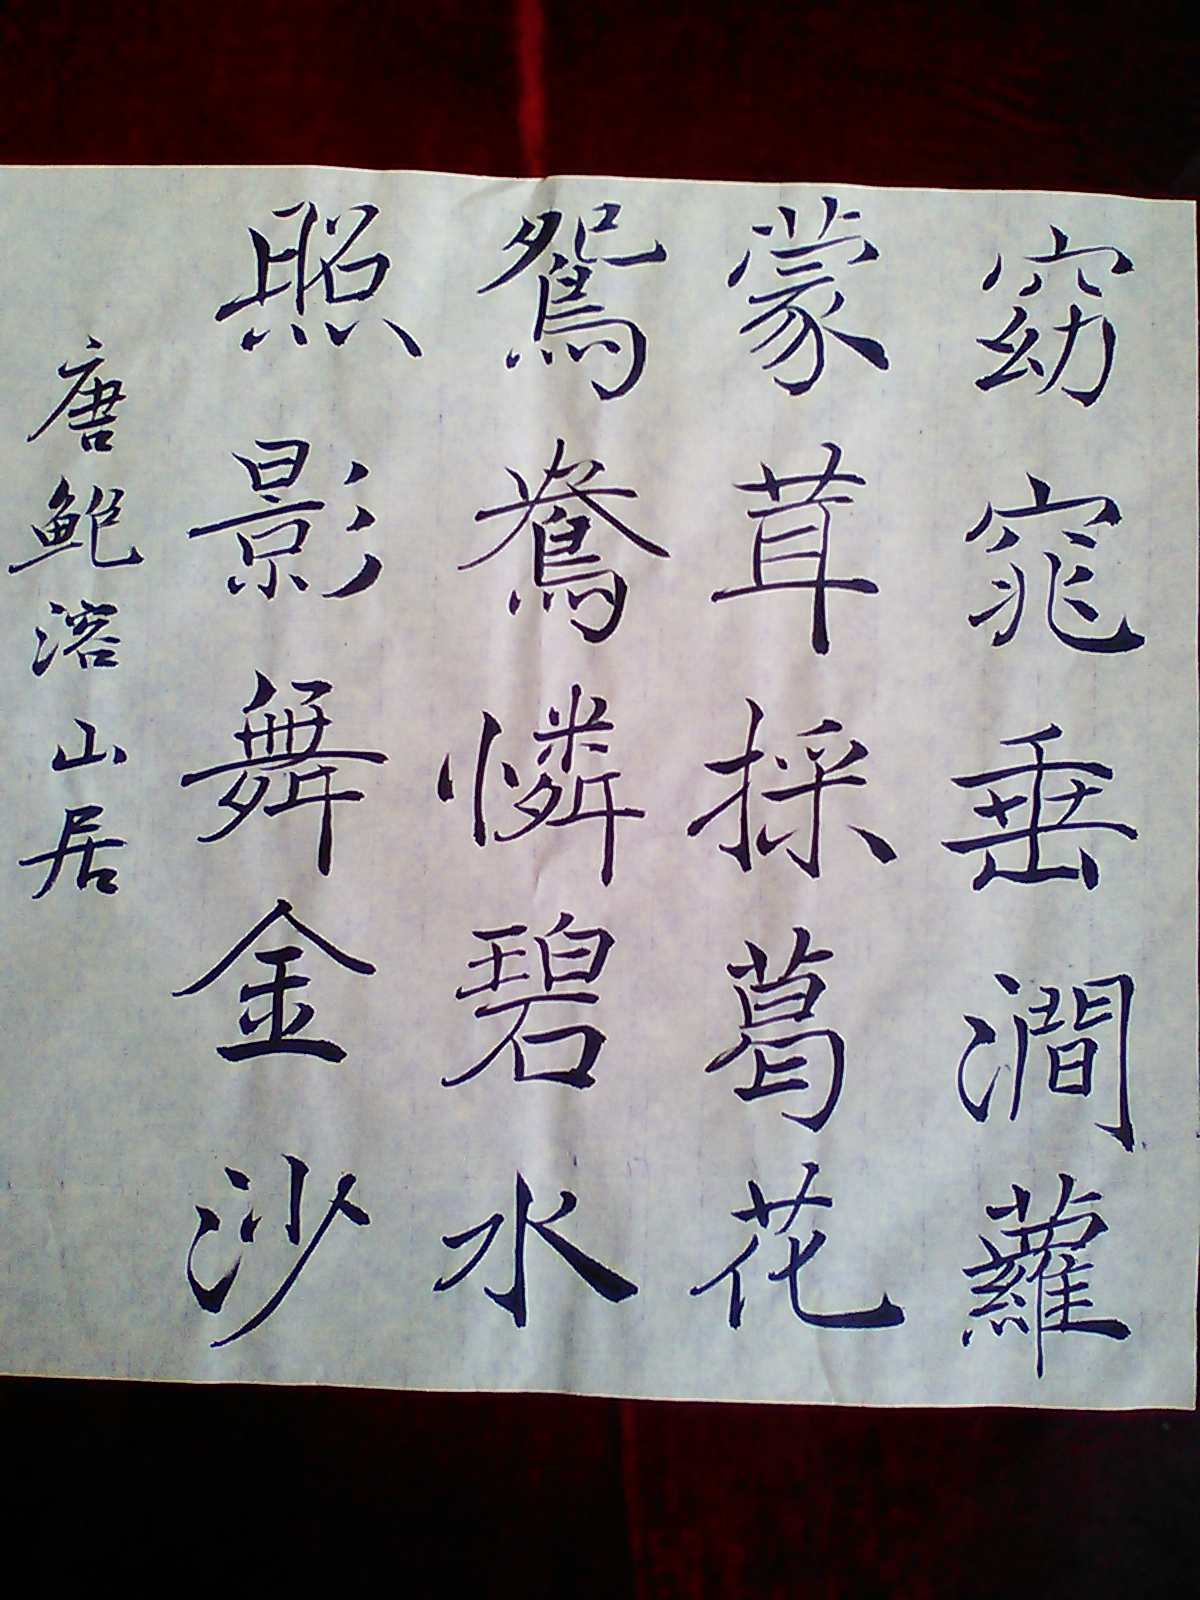 窈窕垂澗蘿
蒙茸採葛花
鴛鴦憐碧水
照影舞金沙
唐鮑溶山居